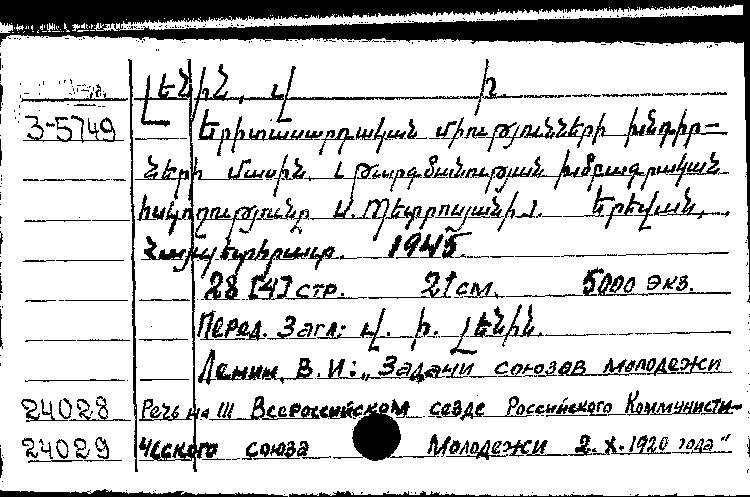 Լենին, Վ. Ի.
3-5749 Երիտասարդական միությունների խնդիր-
ների մասին. (Թարգմանության խմբագրական
հսկողությունը Ա. Պետրոսյանի). Երևան,
Հայպետհրատ. 1945.
28 [4] стр. 21 см. 5000 экз.
Перед. Загл: Վ. Ի. Լենին.
Ленин, В. И: „Задачи союзов молодежи
24028 Речь на III Всероссийском сезде Российского Коммунисти-
24029 ческого союза Молодежи 2. X. 1920 года"